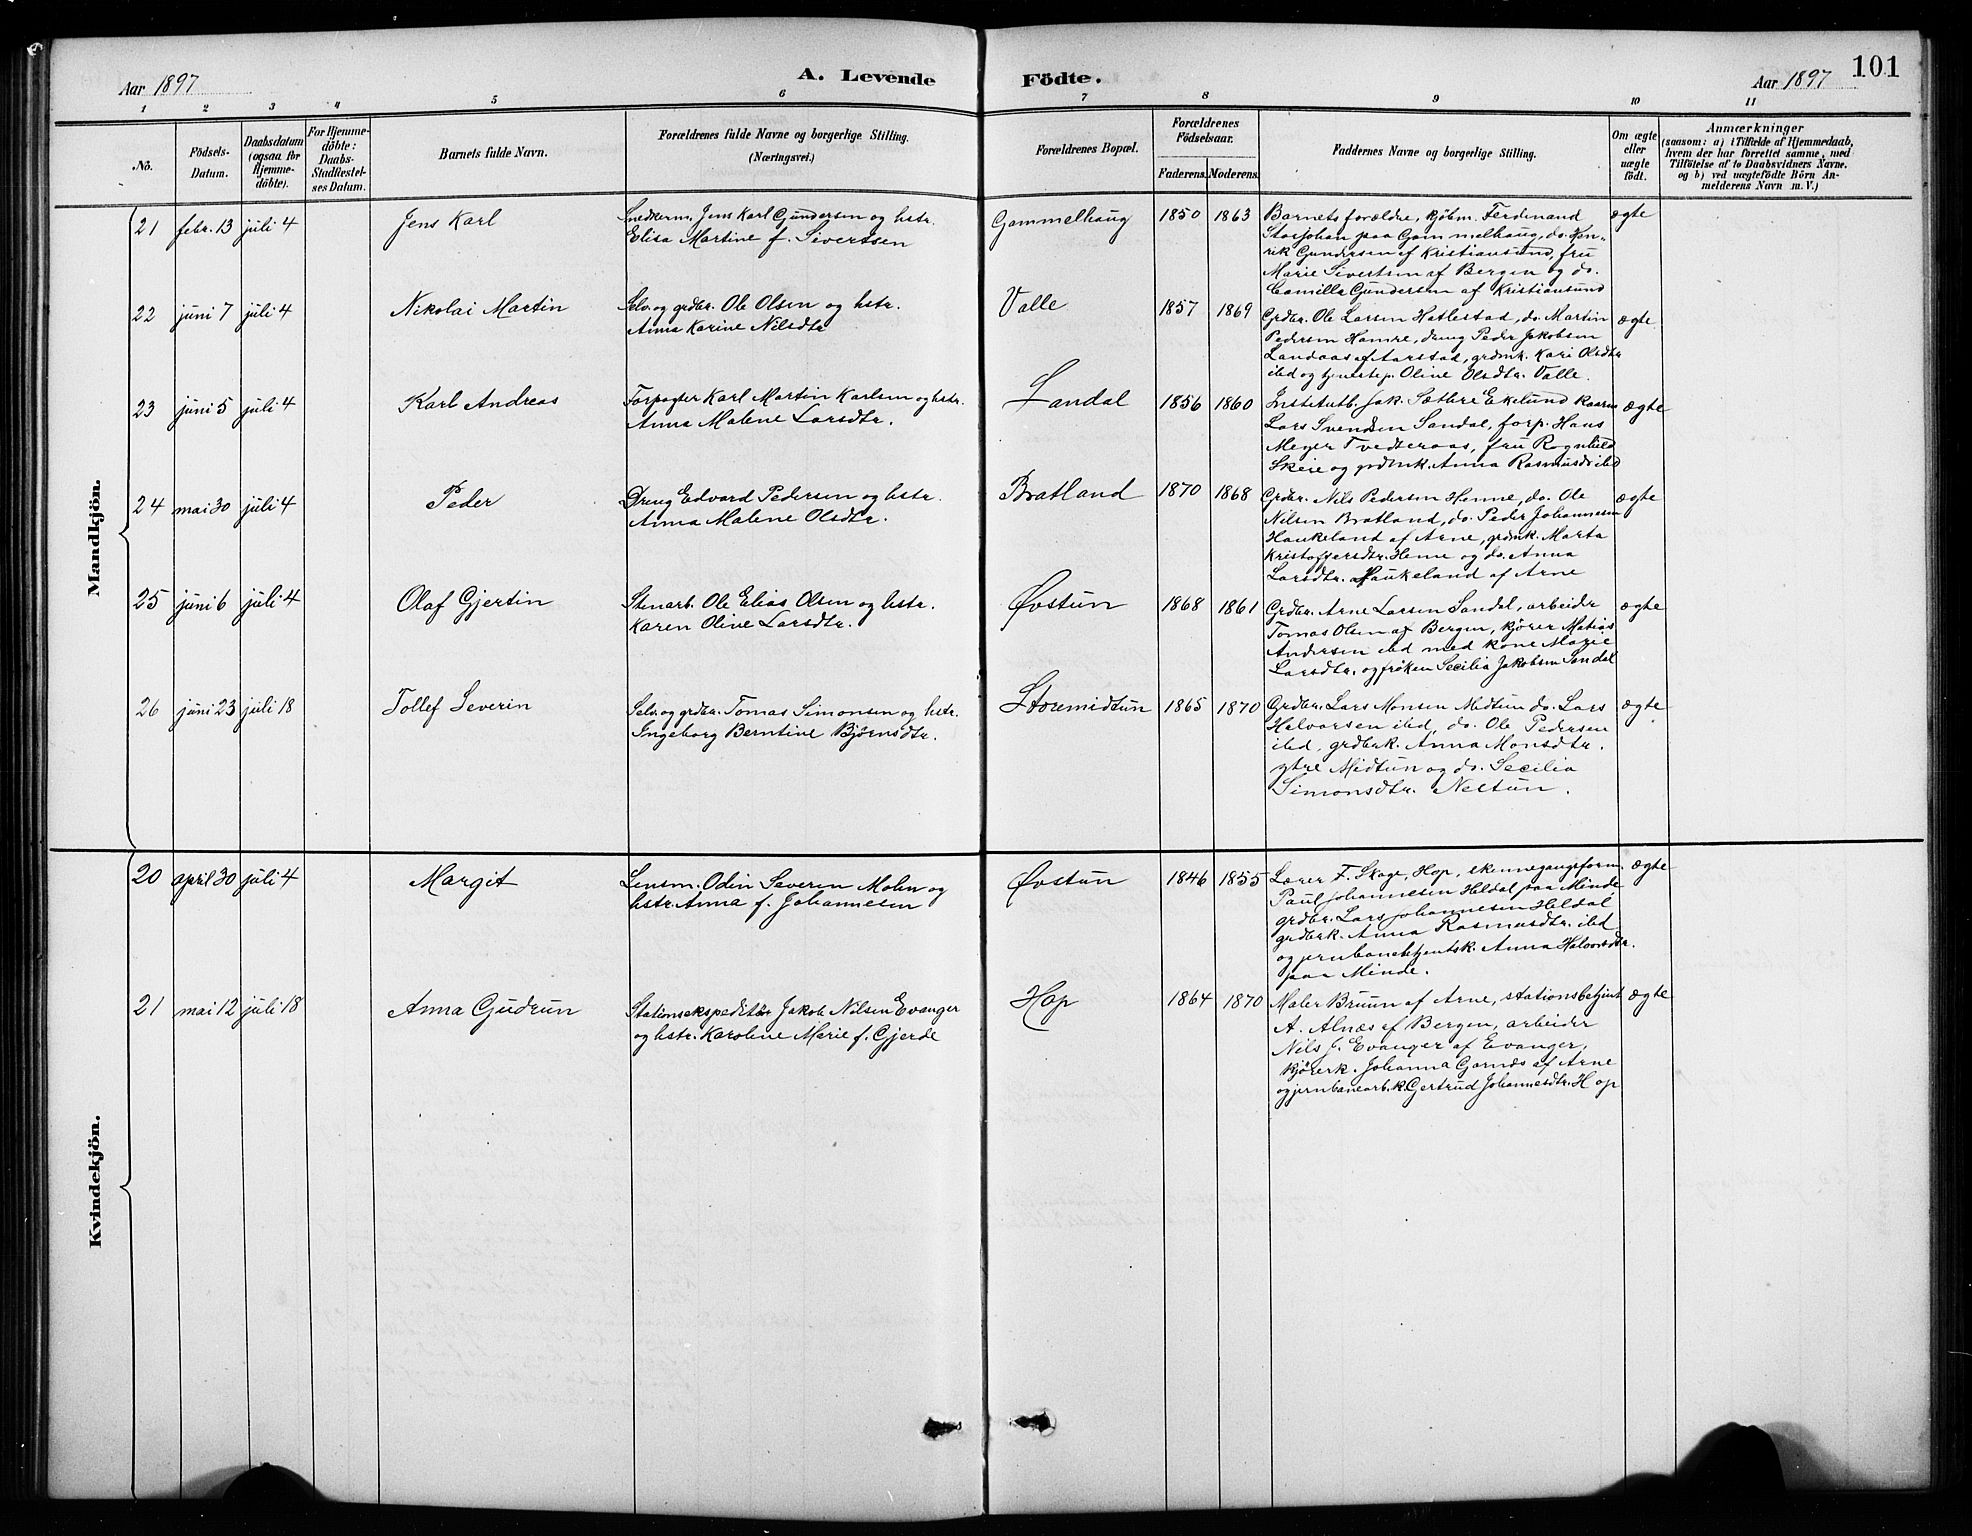 101
Aar 1897
A. Levende
Födte.
Aar 1897
1 2 3 4 5 6 7 8 9 10 11
No.
Födsels-
Datum.
Daabsdatum
(ogsaa for
Hjemme-
döbte).
For Hjemme-
döbte:
Daabs-
Stadfæstel-
ses Datum.
Barnets fulde Navn.
Forældrenes fulde Navne og borgerlige Stilling.
(Næringsvei.)
Forældrenes Bopæl.
Forældrenes
Födselsaar.
Faderens.
Moderens.
Faddernes Navne og borgerlige Stilling.
Om ægte
eller
uægte
födt.
Anmærkninger
(saasom: a) i Tilfælde af Hjemmedaab,
hvem der har forrettet samme, med
Tilföielse af to Daabsvidners Navne.
og b) ved uægtefödte Börn An-
melderens Navn m. V.)
Mandkjön.
21 febr. 13 juli 4 Jens Karl
Snedkerm. Jens Karl Gundersen og hstr.
Elisa Martine f. Sivertsen
Gammelhaug 1850 1863
Barnets forældre, kjøbm. Ferdinand
Storjohan paa Gammelhaug, do. Hen-
rik Gundersen af Kristiansund, fru
Marie Sivertsen af Bergen og do.
Camilla Gundersen af Kristiansund
ægte
22 juni 7 juli 4 Nikolai Martin
Selv. og grdbr. Ole Olsen og hstr.
Anna Karine Nilsdtr
Valle 1857 1869
Grdbr. Ole Larsen Hatlestad, do. Martin
Pedersen Hamre, dreng Peder Jakobsen
Landaas af Aarstad, grdmk. Kari Olsdtr
ibd og tjenestep. Oline Olsdtr. Valle.
ægte
23 juni 5 juli 4 Karl Andreas
Forpagter Karl Martin Karlsen og hstr.
Anna Malene Larsdtr.
Sandal 1856 1860
Institutb. Jak. Sæthre Ekelund
Lars Svendsen Sandal, forp. Hans
Meyer Tvedteraas, fru Rognhild
Skeie og grdmk. Anna Rasmusd ibd
ægte
24 mai 30 juli 4 Peder
Dreng Edvard Pedersen og hstr.
Anna Malene Olsdtr.
Bratland 1870 1868
Grdbr. Nils Pedersen Henne, do. Ole
Nilsen Bratland, do. Peder Johannesen
Haukeland af Arne, grdmk. Marta
Kristoffersdtr. Henne og do. Anna
Larsdtr. Haukeland af Arne
ægte
25 juni 6 juli 4 Olaf Gjertin
Stenarb. Ole Elias Olsen og hstr.
Karen Oline Larsdtr.
Øvstun 1868 1861
Grdbr. Arne Larsen Sandal, arbeider
Tomas Olsen af Bergen, kjører Matias
Andersen ibd med kone Marie
Larsdtr. og frøken Secilia Jakobsen Sandal
ægte
26 juni 23 juli 18 Tollef Severin
Selv. og grdbr. Tomas Simonsen og hstr.
Ingeborg Berntine Bjørnsdtr.
Storemidtun 1865 1870
Grdbr. Lars Monsen Midtun do. Lars
Halvorsen ibd, do. Ole Pedersen
ibd, grdbrk. Anna Monsdtr.
ytre Midtun og do. Secilia
Simonsdtr. Nestun.
ægte
Kvindekjön.
20 april 30 juli 4 Margit
Lensm. Odin Severin Mohn og
hstr. Anna f. Johannesen
Øvstun 1846 1855
Lærer F. Skage, Hop, skinnegangsform.
Paul Johannesen Heldal paa Minde
grdbr. Lars Johannesen Heldal
grdbrk. Anna Rasmusdtr. ibd
og jernbanebetjentsk. Anna Halvorsdtr.
paa Minde.
ægte
21 mai 12 juli 18 Anna Gudrun
Stationsekspeditör Jakob Nilsen Evanger
og hstr. Karoline Marie f. Gjerde
Hop 1864 1870
Maler Bruun af Arne, stationsbetjent
A. Alnæs af Bergen, arbeider
Nils J. Evanger af Evanger,
kjørerk. Johanna Garnæs af Arne
og jernbanearb.k. Gertrud Johannesdtr. Hop
ægte